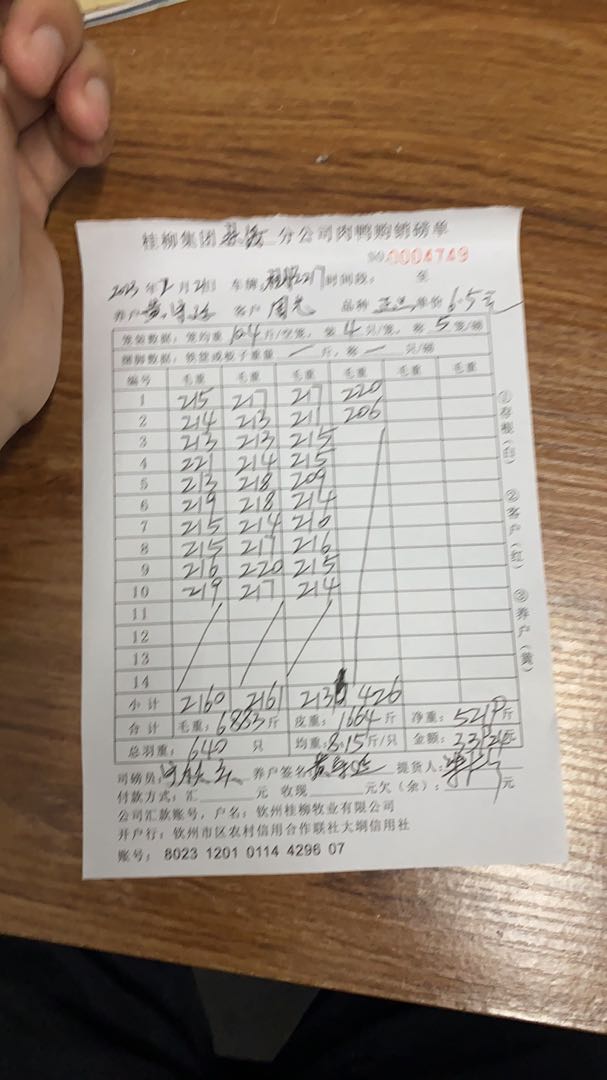 桂柳集团 分公司肉鸭购销磅单
NO.0004749
2023 年 月 日 车牌: 217 时间段: 至
养户 黄 客户 周 品种 单价 6.5元
笼装数据: 笼均重 10.4 斤/空笼, 装 4 只/笼, 称 5 笼/磅
捆脚数据: 铁篮或板子重量 / 斤, 称 / 只/磅
编号 毛重 毛重 毛重 毛重 毛重 毛重
1 215 217 217 220
2 214 213 211 206
3 213 213 215
4 221 214 215
5 213 218 209
6 219 218 214
7 215 214 210
8 215 217 216
9 216 220 215
10 219 217 214
11
12
13
14
小计 2160 2161 2136 426
合计 毛重: 6883 斤 皮重: 1664 斤 净重: 5219 斤
总羽重: 640 只 均重: 8.15 斤/只 金额: 元
司磅员: 养户签名 黄 提货人:
付款方式: 汇 元 收现 元欠(余): 元
公司汇款账号, 户名: 钦州桂柳牧业有限公司
开户行: 钦州市区农村信用合作联社大垌信用社
账号: 8023 1201 0114 4296 07
①存根(白)
②客户(红)
③养户(黄)